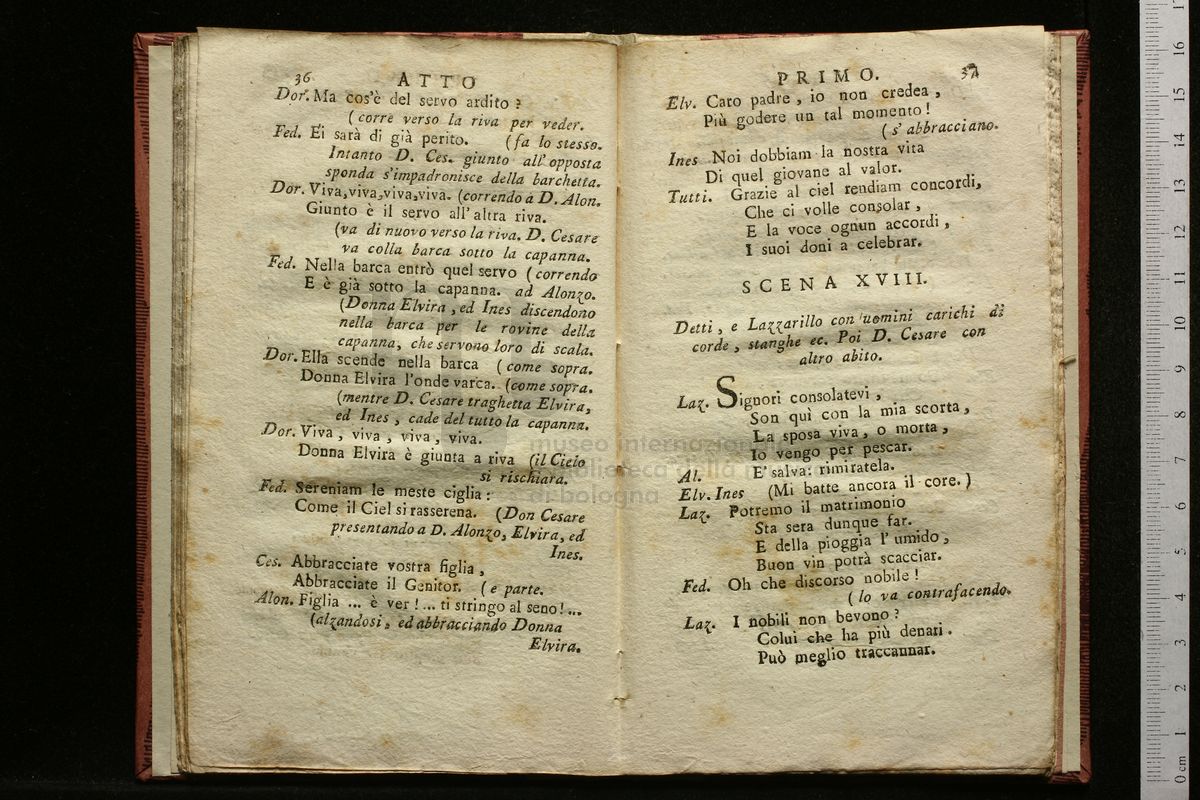 36 ATTO
Dor. Ma cos'è del servo ardito?
(corre verso la riva per veder.
Fed. Ei sarà di già perito. (fa lo stesso.
Intanto D. Ces. giunto all'opposta
sponda s'impadronisce della barchetta.
Dor. Viva, viva, viva, viva. (correndo a D. Alon.
Giunto è il servo all'altra riva.
(va di nuovo verso la riva. D. Cesare
va colla barca sotto la capanna.
Fed. Nella barca entrò quel servo (correndo
E è già sotto la capanna. ad Alonzo.
(Donna Elvira, ed Ines discendono
nella barca per le rovine della
capanna, che servono loro di scala.
Dor. Ella scende nella barca (come sopra.
Donna Elvira l'onde varca. (come sopra.
(mentre D. Cesare traghetta Elvira,
ed Ines, cade del tutto la capanna.
Dor. Viva, viva, viva, viva.
Donna Elvira è giunta a riva (il Cielo
si rischiara.
Fed. Sereniam le meste ciglia:
Come il Ciel si rasserena. (Don Cesare
presentando a D. Alonzo, Elvira, ed
Ines.
Ces. Abbracciate vostra figlia,
Abbracciate il Genitor. (e parte.
Alon. Figlia ... è ver! ... ti stringo al seno! ...
(alzandosi, ed abbracciando Donna
Elvira.
PRIMO. 37
Elv. Caro padre, io non credea,
Più godere un tal momento!
(s'abbracciano.
Ines Noi dobbiam la nostra vita
Di quel giovane al valor.
Tutti. Grazie al ciel rendiam concordi,
Che ci volle consolar,
E la voce ognun accordi,
I suoi doni a celebrar.
SCENA XVIII.
Detti, e Lazzarillo con uomini carichi di
corde, stanghe ec. Poi D. Cesare con
altro abito.
Laz. Signori consolatevi,
Son quì con la mia scorta,
La sposa viva, o morta,
Io vengo per pescar.
Al. E' salva: rimiratela.
Elv. Ines (Mi batte ancora il core.)
Laz. Potremo il matrimonio
Sta sera dunque far.
E della pioggia l'umido,
Buon vin potrà scacciar.
Fed. Oh che discorso nobile!
(lo va contrafacendo.
Laz. I nobili non bevono?
Colui che ha più denari.
Può meglio traccannar.
museo internazionale
biblioteca della musica
di bologna
0 cm 1 2 3 4 5 6 7 8 9 10 11 12 13 14 15 16 17